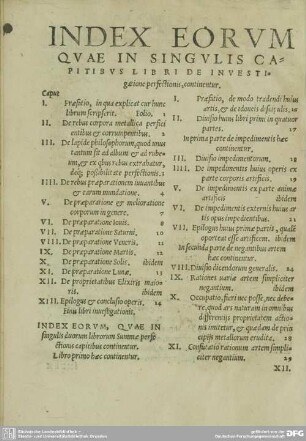 INDEX EORVM
QVAE IN SINGVLIS CA-
PITIBVS LIBRI DE INVESTI-
gatione perfectionis, continentur.
Caput
I. Præfatio, in qua explicat cur hunc
librum scripserit. Folio, 1
II. De rebus corpora metallica perfici
entibus & corrumpentibus. 2
III. De lapide philosophorum, quod unus
tantum sit ad album & ad rubeum,
& ex quibus rebus extrahatur,
deque possibilitate perfectionis.
IIII. De rebus præparationem iuuantibus
& earum mundatione.
V. De præparatione & melioratione
corporum in genere. 7
VI. De præparatione Iouis. 9
VII. De præparatione Saturni. 10
VIII. De præparatione Veneris. 11
IX. De præparatione Martis. 12
X. De præparatione Solis. ibidem
XI. De præparatione Lunæ. 11
XII. De proprietatibus Elixiris maioris.
ibidem
XIII. Epilogus & conclusio operis. 14
Finis libri inuestigationis.
INDEX EORVM, QVAE IN
singulis duorum librorum Summæ perfectionis
capitibus continentur.
Libro primo hæc continentur.
I. Præfatio, de modo tradendi huius
artis, & de idoneis discipulis.
II. Diuisio huius libri primi in quatuor
partes. 17
In prima parte de impedimentis hæc
continentur.
III. Diuisio impedimentorum.
IIII. De impedimentis huius operis ex
parte corporis artificis. 19
V. De impedimentis ex parte animæ
artificis ibidem
VI. De impedimentis externis huius artis
opus impedientibus.
VII. Epilogus huius primæ partis, qualem
oporteat esse artificem. ibidem
In secunda parte de negantibus artem
hæc continentur.
VIII. Diuisio dicendorum generalis. 24
IX. Rationes uariæ artem simpliciter
negantium. ibidem
X. Occupatio, fieri nec posse, nec debere,
quod ars naturam in omnibus
differentijs proprietatem actionis
imitetur, & quædam de principijs
metallorum erudita.
XI. Confutatio rationum artem simpliciter
negantium. 29
XII.